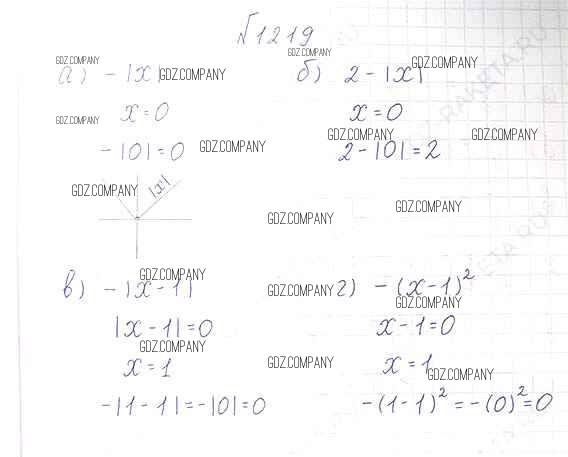 №1219
GDZ.COMPANY GDZ.COMPANY
а) -|x| GDZ.COMPANY б) 2-|x| GDZ.COMPANY
GDZ.COMPANY x=0 x=0
-|0|=0 GDZ.COMPANY GDZ.COMPANY GDZ.COMPANY
2-|0|=2
GDZ.COMPANY |x| GDZ.COMPANY GDZ.COMPANY
в) -|x-1| GDZ.COMPANY GDZ.COMPANY г) -(x-1)² GDZ.COMPANY
|x-1|=0 x-1=0
GDZ.COMPANY GDZ.COMPANY
x=1 x=1 GDZ.COMPANY
-|1-1|=-|0|=0 -(1-1)²=-(0)²=0
RAKETA.RU
RAKETA.RU